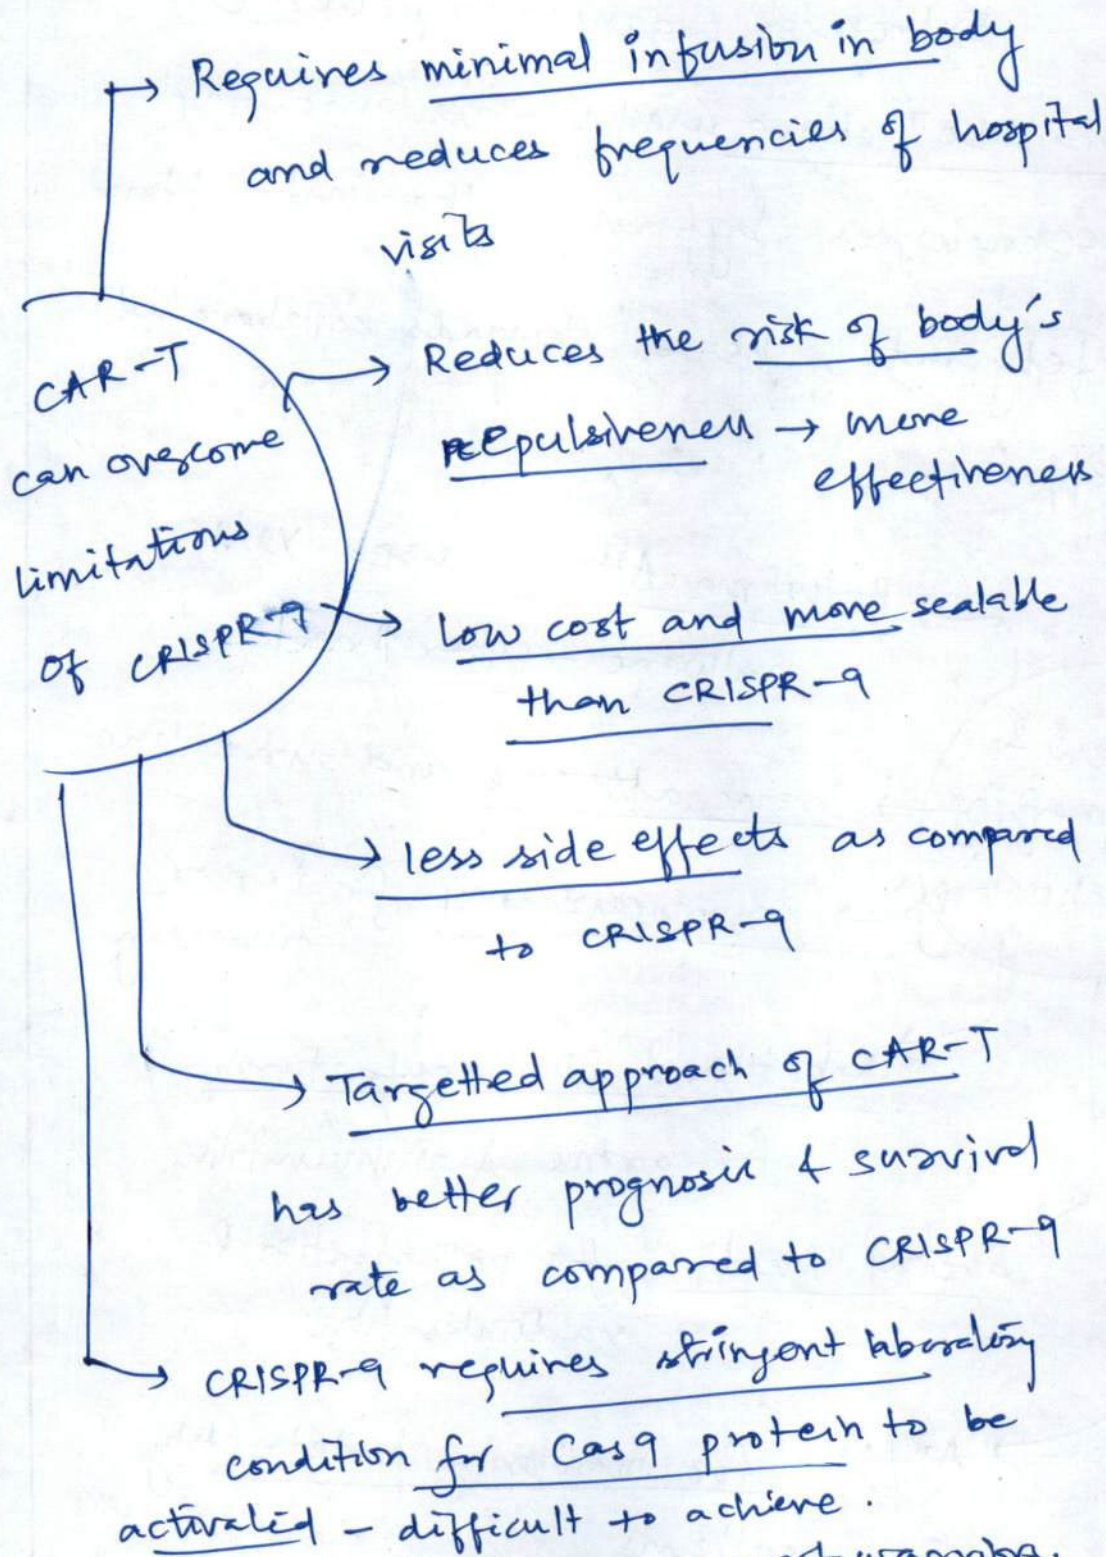 Requires minimal infusion in body
and reduces frequencies of hospital
visits
CAR-T
can overcome
limitations
of CRISPR-9
Reduces the risk of body's
repulsiveness → more
effectiveness
Low cost and more scalable
than CRISPR-9
less side effects as compared
to CRISPR-9
Targetted approach of CAR-T
has better prognosis & survival
rate as compared to CRISPR-9
CRISPR-9 requires stringent laboratory
condition for Cas9 protein to be
activated - difficult to achieve.